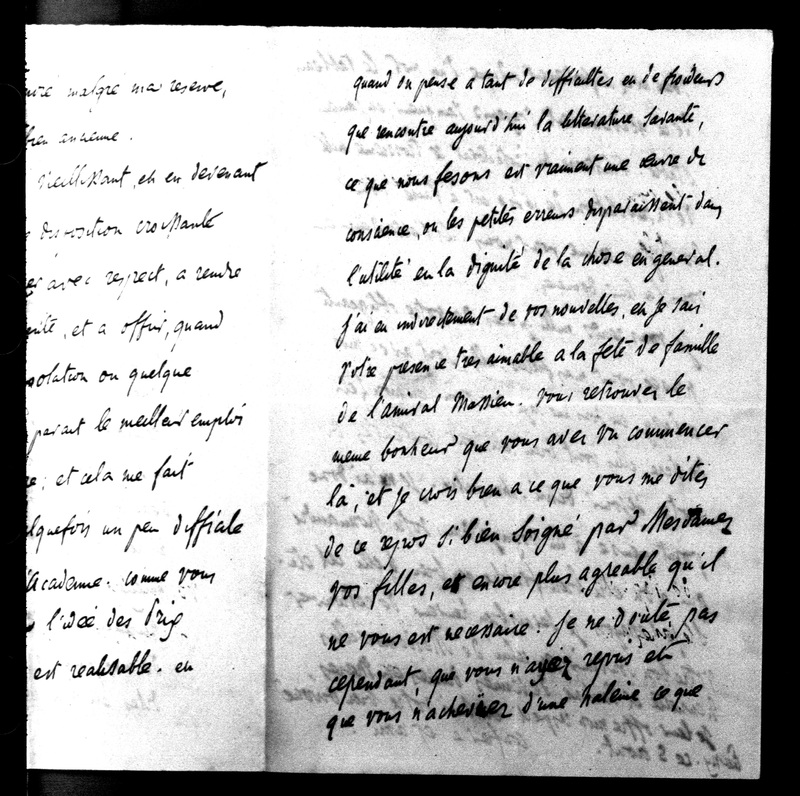 malgre ma reserve,
bien ancienne.
vieillissant, et en devenant
disposition croissante
avec respect, a rendre
et a offrir, quand
ou quelque
parait le meilleur emploi
et cela me fait
un peu difficile
Academie. comme vous
l'idée des Prix
est realisable. en
quand on pense a tant de difficultes et de froideurs
que rencontre aujourd'hui la litterature savante,
ce que nous fesons est vraiment une œuvre de
conscience, ou les petites erreurs disparaissent dans
l'utilité et la dignité de la chose en general.
j'ai eu indirectement de vos nouvelles, et je sais
votre presence tres aimable a la fete de famille
de l'amiral Massieu. vous retrouvez le
meme bonheur que vous avez vu commencer
la, et je crois bien a ce que vous me dites
de ce repos si bien soigné par Mesdames
vos filles, et encore plus agreable qu'il
ne vous est necessaire. je ne doute pas
cependant, que vous n'ayez repris et
que vous n'acheviez d'une haleine ce que